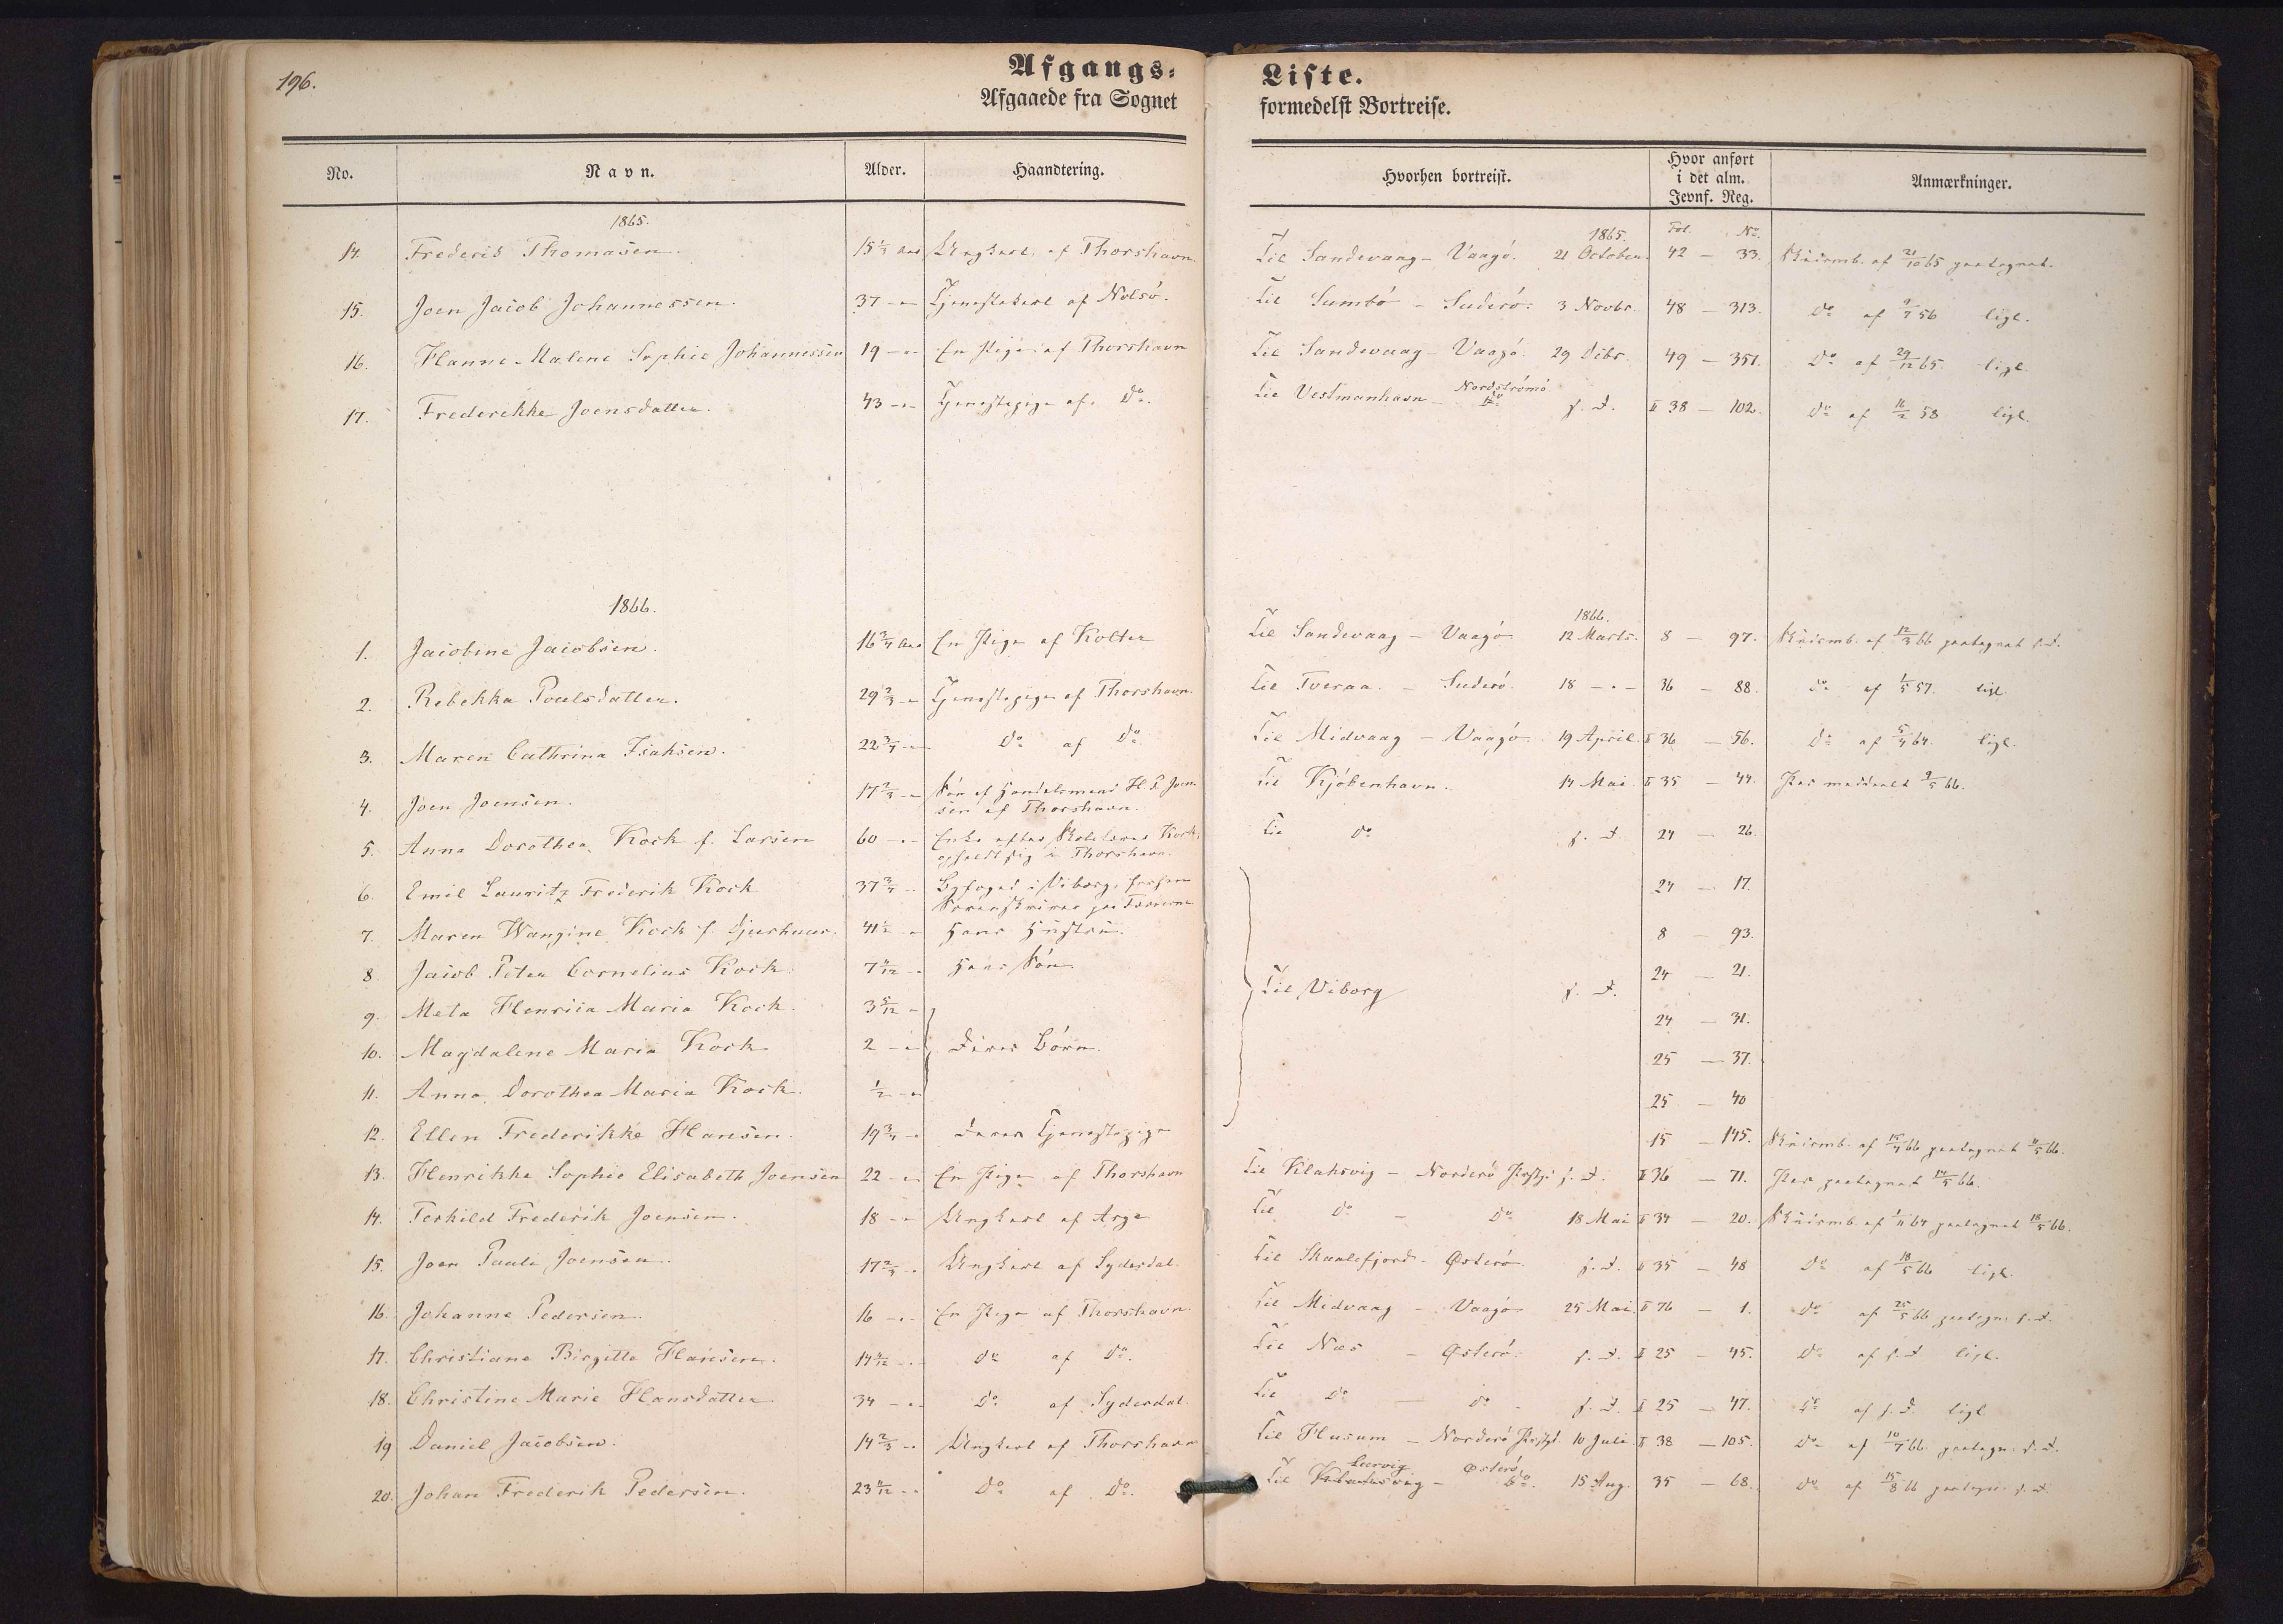 196.
Afgangs-
Liste.
Afgaaede fra Sognet
formedelst Bortreise.
No. Navn. Alder. Haandtering. Hvorhen bortreist. Hvor anført i det alm. Jevnf. Reg. Anmærkninger.
1865. 1865. Fol. No.
14. Frederik Thomasen. 15 1/3 Aar Ungkarl af Thorshavn. Til Sandevaag - Vaagö. 21 October. 42 - 33. Skudsmb. af 21/10 65 paategnet.
15. Joen Jacob Johannessen. 37 -"- Tjenestekarl af Nolsö. Til Sumbö - Suderö. 3 Novbr. 48 - 313. Do. af 9/7 56 ligl.
16. Hanne Malene Sophie Johannessen 19 -"- En Pige af Thorshavn Til Sandevaag - Vaagö. 29 Decbr. 49 - 351. Do. af 29/12 65. ligl.
17. Frederikke Joensdatter. 43 -"- Tjenestepige af Do. Til Vestmanhavn - Nordströmö s. D. II 38 - 102. Do. af 11/2 58 ligl.
1866. 1866.
1. Jacobine Jacobsen. 16 3/4 Aar En Pige af Kolter Til Sandevaag - Vaagö 12 Marts. 8 - 97. Skudsmb. af 12/3 66 paategnet s. D.
2. Rebekka Poulsdatter. 29 2/3 -"- Tjenestepige af Thorshavn. Til Tveraa. - Suderö. 18 -"- 36 - 88. Do. af 1/5 57. ligl.
3. Maren Cathrina Isaksen. 22 3/4 -"- Do. af Do. Til Midvaag - Vaagö 19 April. II 36 - 56. Do. af 5/4 64. ligl.
4. Joen Joensen. 17 2/3 -"- Sön af Handelsmand H. P. Joensen af Thorshavn. Til Kjöbenhavn. 14 Mai II 35 - 44. Pas meddeelt 9/5 66.
5. Anna Dorothea Kock f. Larsen 60 -"- Enke efter Skolelærer Kock, opholdt sig i Thorshavn. Til Do s. D. 24 - 26.
6. Emil Lauritz Frederik Kock 37 3/4 - Byfoged i Viborg, forhen Sorenskriver paa Færöerne 24 - 17.
7. Maren Wangine Kock f. Djurhuus. 41 1/2 -"- Hans Hustru. 8 - 93.
8. Jacob Peter Cornelius Kock. 7 11/12 -"- Hans Sön 24 - 21.
Til Viborg s. D.
9. Meta Henrica Maria Kock. 3 5/12 - 24 - 31.
10. Magdalene Maria Kock 2 -"- Deres Börn. 25 - 37.
11. Anna Dorothea Maria Kock. 1/2 -"- 25 - 40
12. Ellen Frederikke Hansen. 19 3/4 - Deres Tjenestepige 15 - 145. Skudsmb. af 15/4 66 paategnet 11/5 66.
13. Henrikke Sophie Elisabeth Joensen 22 -"- En Pige af Thorshavn Til Klaksvig - Norderö Præstgj. s. D. II 36 - 71. Pas paategnet 14/5 66.
14. Terkild Frederik Joensen. 18 -"- Ungkarl af Arge Til Do - Do. 18 Mai II 34 - 20. Skudsmb. af 1/11 64 paategnet 18/5 66.
15. Joen Pauli Joensen. 17 2/3 - Ungkarl af Syderdal. Til Skaalefjord - Österö s. D. II 35 - 48 Do. af 18/5 66 ligl.
16. Johanne Pedersen. 16 -"- En Pige af Thorshavn. Til Midvaag - Vaagö 25 Mai. II 76 - 1. Do. af 25/5 66 paategn. s. D.
17. Christiane Birgitte Hansen. 14 11/12 -"- Do. af Do. Til Næs - Österö. s. D. II 25 - 45. Do. af s. D. ligl.
18. Christine Marie Hansdatter 34 -"- Do. af Syderdal. Til Do - Do - s. D. II 25 - 47. Do. af s. D. ligl
19 Daniel Jacobsen. 14 2/3 -"- Ungkarl af Thorshavn Til Husum - Norderö Præstgj. 10 Juli. II 38 - 105. Do. af 10/7 66. paategn. s. D.
20. Johan Frederik Pedersen. 23 11/12 -"- Do. af Do. Til Klaksvig Leervig - Österö Do. 15 Aug. 35 - 68. Do. af 15/8 66 paategn. s. D.